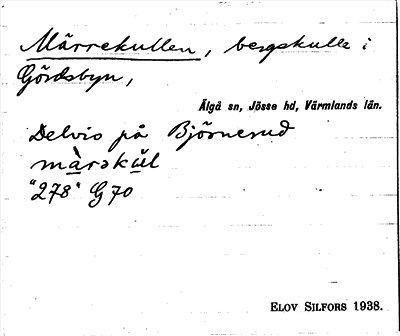 Märrekullen, bergskulle i
Gördsbyn,
Älgå sn, Jösse hd, Värmlands län.
Delvis på Björnerud
märskul
"278" G 70
ELOV SILFORS 1938.